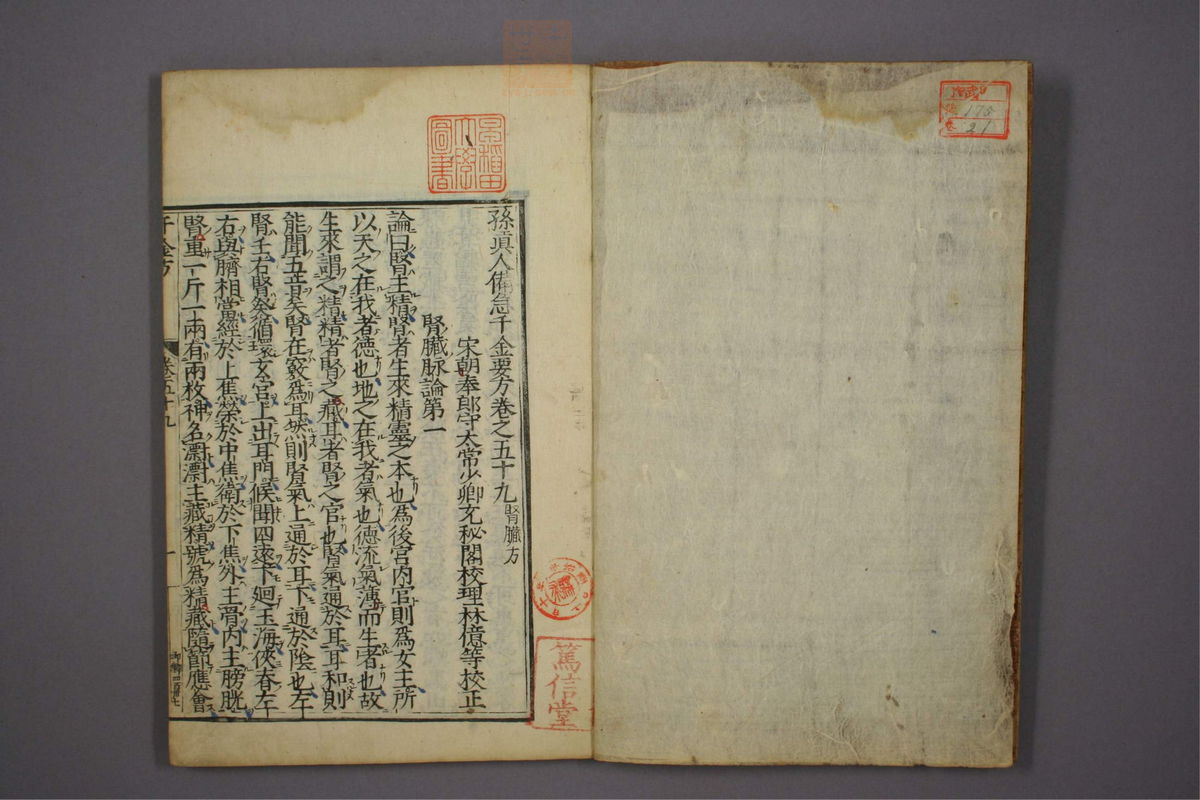 孫眞人備急千金要方卷之五十九 腎臟方
宋朝奉郎守太常少卿充秘閣校理林億等校正
腎臟脉論第一
論曰腎主精腎者生來精靈之本也爲後宮內官則爲女主所
以天之在我者德也地之在我者氣也德流氣薄而生者也故
生來謂之精精者腎之藏耳者腎之官也腎氣通於耳耳和則
能聞五音矣腎在竅爲耳然則腎氣上通於耳下通於陰也左
腎壬右腎癸循環玄宮上出耳門候聞四遠下迴玉海俠脊左
右與臍相當經於上焦榮於中焦衛於下焦外主骨內主膀胱
腎重一斤一兩有兩枚神名𣿰𣿰主藏精號爲精藏隨節應會
千金方 卷五十九 一
早稲田大學圖書
篤信堂
175
21